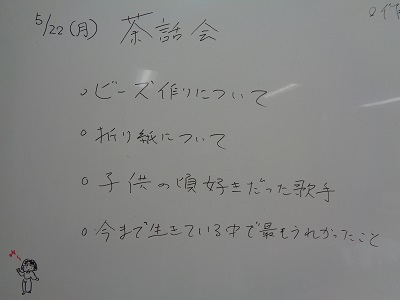 5/22(月) 茶話会
○作
○ビーズ作りについて
○折り紙について
○子供の頃好きだった歌手
○今まで生きている中で最もうれかったこと